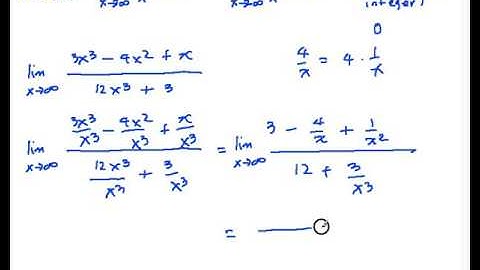 x→∞ x→∞ integer)
0
lim x→∞ (3x³ − 4x² + x) / (12x³ + 3)
4/x = 4 · 1/x
lim x→∞ (3x³/x³ − 4x²/x³ + x/x³) / (12x³/x³ + 3/x³) = lim x→∞ (3 − 4/x + 1/x²) / (12 + 3/x³)
= ———